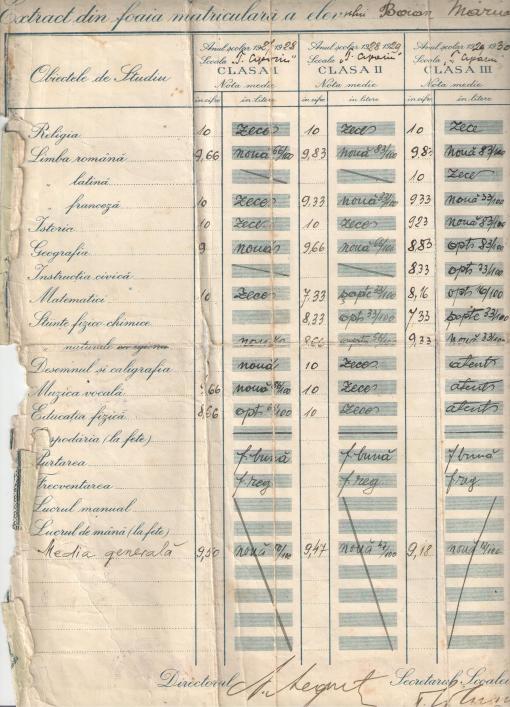 Extract din foaia matriculară a elevului Boian Marius
Anul școlar 1927 1928 Anul școlar 1928 1929 Anul școlar 1929 1930
Școala „T. Cipariu" Școala „T. Cipariu" Școala „T. Cipariu"
Obiectele de Studiu CLASA I CLASA II CLASA III
Nota medie Nota medie Nota medie
în cifre în litere în cifre în litere în cifre în litere
Religia 10 zece 10 zece 10 zece
Limba română 9,66 nouă 66/100 9,83 nouă 83/100 9,83 nouă 83/100
" latină 10 zece
" franceză 10 zece 9,33 nouă 33/100 933 nouă 33/100
Istoria 10 zece 10 zece 983 nouă 83/100
Geografia 9 nouă 9,66 nouă 66/100 8,83 opt 83/100
Instrucția civică 833 opt 33/100
Matematici 10 zece 7,33 șapte 33/100 8,16 opt 16/100
Științe fizico-chimice 8,33 opt 33/100 7,33 șapte 33/100
" naturale nouă 8,66 9,33 nouă 33/100
Desemnul și caligrafia nouă 10 zece atent
Muzica vocală nouă 66/100 10 zece atent
Educația fizică opt 10 zece atent
Gospodăria (la fete)
Purtarea f. bună f. bună f. bună
Frecventarea f. reg f. reg f. reg
Lucrul manual
Lucrul de mână (la fete)
Media generală 9,50 nouă 50/100 9,47 nouă 47/100 9,18 nouă 18/100
Directorul Secretarul Școalei